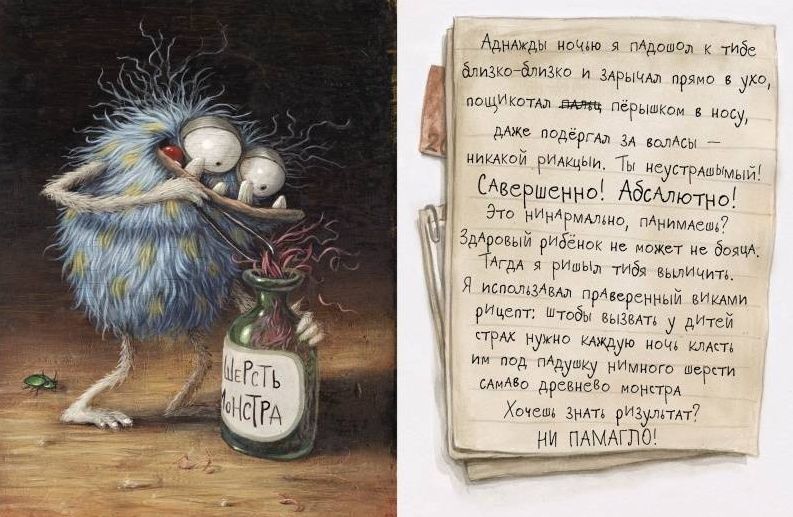 ШЕРСТЬ
МОНСТРА
Аднажды ночью я падошол к тибе
близко-близко и зарычал прямо в ухо,
пощикотал пальц пёрышком в носу,
даже подёргал за воласы —
никакой риакцыи. Ты неустрашымый!
Савершенно! Абсалютно!
Это нинармально, панимаешь?
Здаровый рибёнок не может не бояца.
Тагда я ришыл тибя выличить.
Я использавал праверенный виками
рицепт: штобы вызвать у дитей
страх нужно каждую ночь класть
им под падушку нимного шерсти
самаво древнево монстра
Хочешь знать ризультат?
НИ ПАМАГЛО!